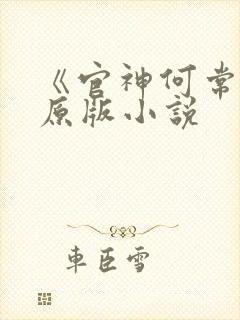 《官神何常
原版小説
車臣雪